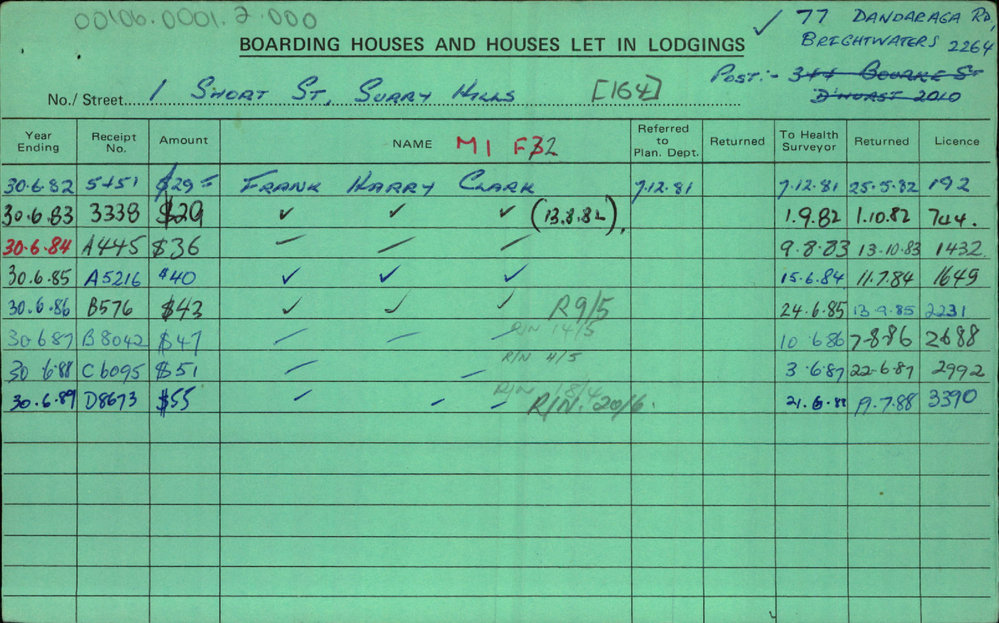 00106.0001.2.000
✓ 77 DANDARAGA RD,
BRIGHTWATERS 2264
BOARDING HOUSES AND HOUSES LET IN LODGINGS
POST:- 344 BOURKE ST
D'HURST 2010
No./ Street 1 SHORT ST, SURRY HILLS [164]
Year Ending Receipt No. Amount NAME M1 F32 Referred to Plan. Dept. Returned To Health Surveyor Returned Licence
30.6.82 5451 $29= FRANK HARRY CLARK 7.12.81 7.12.81 25.5.82 192
30.6.83 3338 $29 ✓ ✓ ✓ (13.8.82). 1.9.82 1.10.82 744.
30.6.84 A445 $36 — — — 9.8.83 13.10.83 1432.
30.6.85 A5216 $40 ✓ ✓ ✓ 15.6.84 11.7.84 1649
30.6.86 B576 $43 ✓ ✓ ✓ R9/5 24.6.85 13.9.85 2231
R/N 14/5
30.6.87 B8042 $47 — — — 10.6.86 7-8-86 2688
R/N 4/5
30.6.88 C6095 $51 — — 3.6.87 22.6.87 2992
R/N 18/4
30.6.89 D8673 $55 — — — R/N. 20/6. 21.6.88 19.7.88 3390